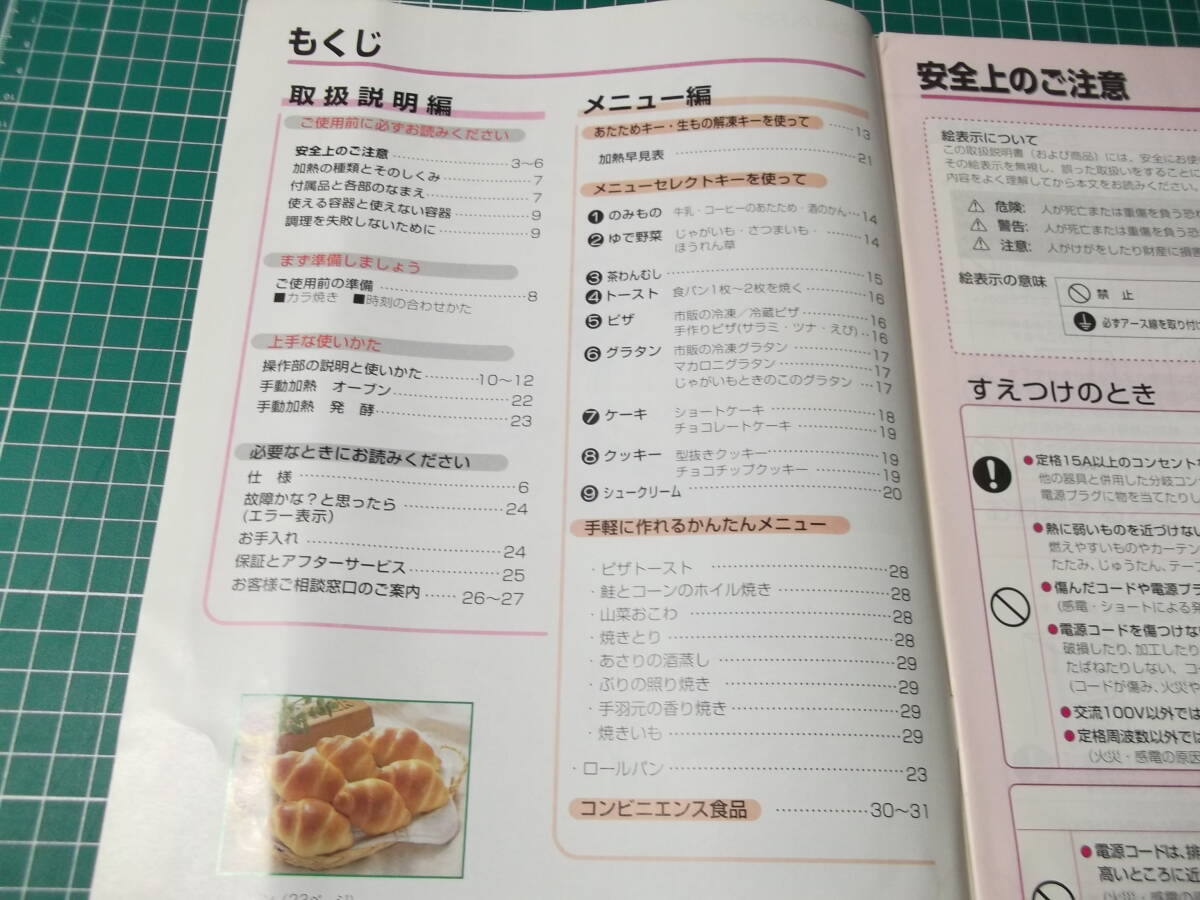 もくじ
取扱説明編
ご使用前に必ずお読みください
安全上のご注意 3〜6
加熱の種類とそのしくみ 7
付属品と各部のなまえ 7
使える容器と使えない容器 9
調理を失敗しないために 9
まず準備しましょう
ご使用前の準備 8
■カラ焼き ■時刻の合わせかた
上手な使いかた
操作部の説明と使いかた 10〜12
手動加熱 オーブン 22
手動加熱 発酵 23
必要なときにお読みください
仕様 6
故障かな?と思ったら 24
(エラー表示)
お手入れ 24
保証とアフターサービス 25
お客様ご相談窓口のご案内 26〜27
メニュー編
あたためキー・生もの解凍キーを使って 13
加熱早見表 21
メニューセレクトキーを使って
❶のみもの 牛乳・コーヒーのあたため・酒のかん 14
❷ゆで野菜 じゃがいも・さつまいも・ 14
ほうれん草
❸茶わんむし 15
❹トースト 食パン1枚〜2枚を焼く 16
❺ピザ 市販の冷凍/冷蔵ピザ 16
手作りピザ(サラミ・ツナ・えび) 16
❻グラタン 市販の冷凍グラタン 17
マカロニグラタン 17
じゃがいもときのこのグラタン 17
❼ケーキ ショートケーキ 18
チョコレートケーキ 19
❽クッキー 型抜きクッキー 19
チョコチップクッキー 19
❾シュークリーム 20
手軽に作れるかんたんメニュー
・ピザトースト 28
・鮭とコーンのホイル焼き 28
・山菜おこわ 28
・焼きとり 28
・あさりの酒蒸し 29
・ぶりの照り焼き 29
・手羽元の香り焼き 29
・焼きいも 29
・ロールパン 23
コンビニエンス食品 30〜31
安全上のご注意
絵表示について
この取扱説明書(および商品)には、安全にお使
その絵表示を無視し、誤った取扱いをすることに
内容をよく理解してから本文をお読みください。
⚠ 危険: 人が死亡または重傷を負う恐
⚠ 警告: 人が死亡または重傷を負う恐
⚠ 注意: 人がけがをしたり財産に損害
絵表示の意味
禁止
必ずアース線を取り付け
すえつけのとき
●定格15A以上のコンセントを
他の器具と併用した分岐コン
電源プラグに物を当てたりし
●熱に弱いものを近づけない
燃えやすいものやカーテン
たたみ、じゅうたん、テーブ
●傷んだコードや電源プラ
(感電・ショートによる発
●電源コードを傷つけな
破損したり、加工したり
たばねたりしない、コー
(コードが傷み、火災や
●交流100V以外では
●定格周波数以外では
(火災・感電の原因
●電源コードは、排
高いところに近
(火災・感電の